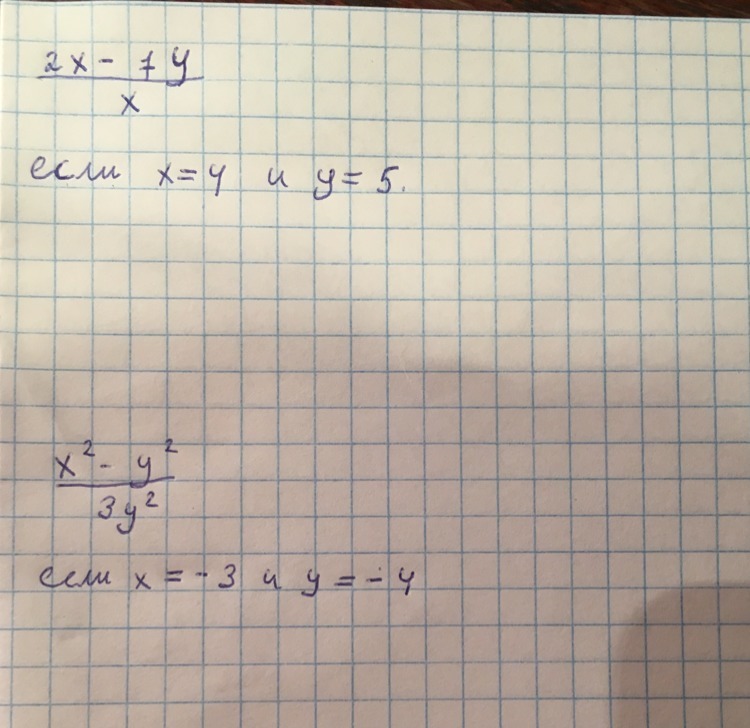 2x - 7y
x
если x=4 и y=5.
x² - y²
3y²
если x = -3 и y = -4